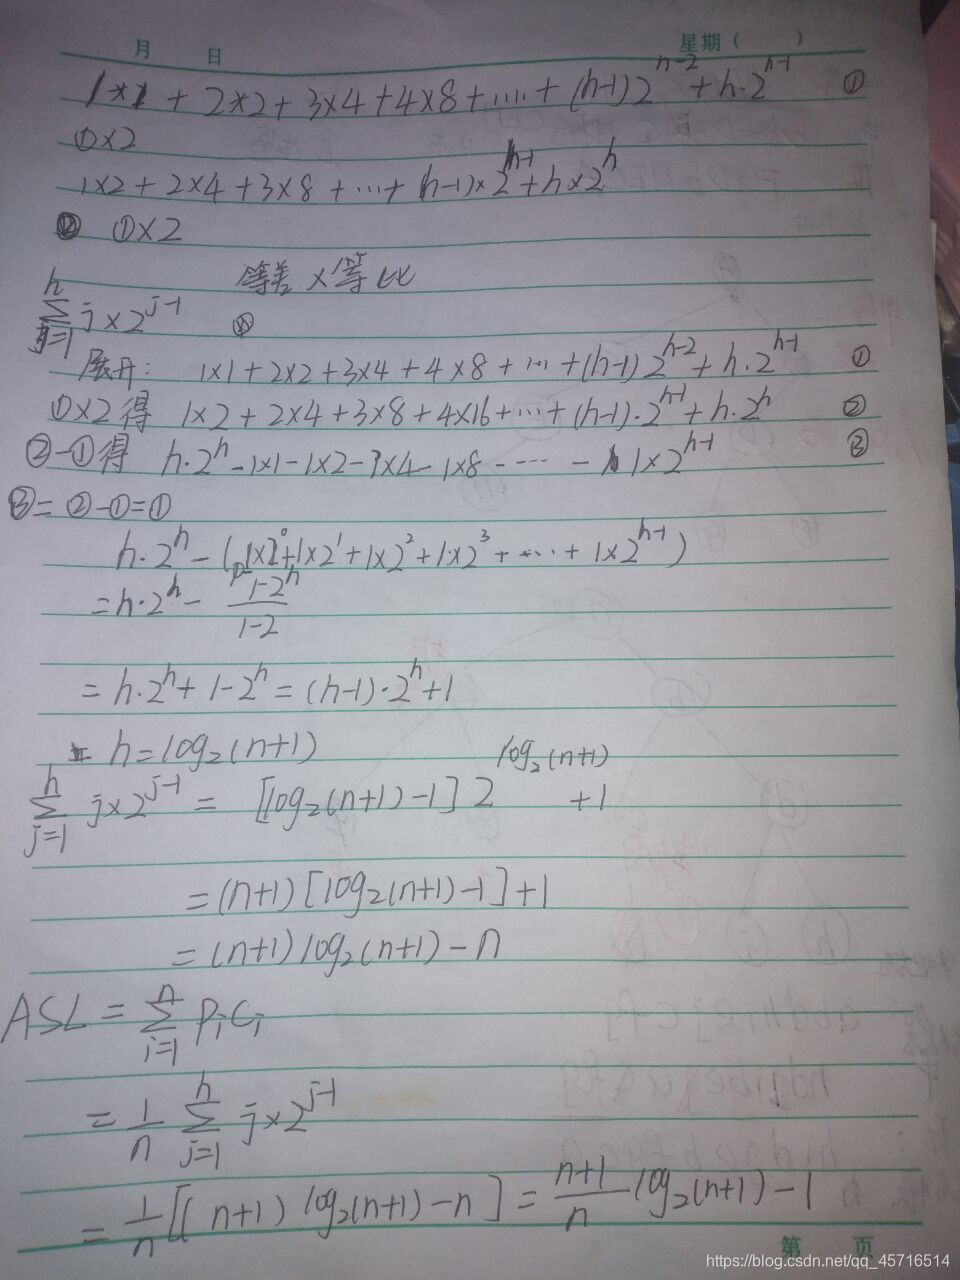 月 日 星期( )
1×1 + 2×2 + 3×4 + 4×8 + ..... + (h-1)2^{h-2} + h·2^{h-1} ①
①×2
1×2 + 2×4 + 3×8 + ...+ (h-1)×2^{h-1} + h×2^h
①×2
等差×等比
\sum_{j=1}^{h} j×2^{j-1}
展开: 1×1 + 2×2 + 3×4 + 4×8 + ... + (h-1)2^{h-2} + h·2^{h-1} ①
①×2得 1×2 + 2×4 + 3×8 + 4×16 + ... + (h-1)·2^{h-1} + h·2^h ②
②-①得 h·2^h - 1×1 - 1×2 - 1×4 - 1×8 - ---- - 1×2^{h-1} ③
③= ②-①=①
h·2^h - (1×2^0 + 1×2^1 + 1×2^2 + 1×2^3 + ... + 1×2^{h-1})
= h·2^h - \frac{1-2^h}{1-2}
= h·2^h + 1 - 2^h = (h-1)·2^h + 1
h = log₂(n+1)
\sum_{j=1}^{h} j×2^{j-1} = [log₂(n+1) - 1] 2^{log₂(n+1)} + 1
= (n+1)[log₂(n+1) - 1] + 1
= (n+1) log₂(n+1) - n
ASL = \sum_{i=1}^{n} p_i c_i
= \frac{1}{n} \sum_{j=1}^{h} j×2^{j-1}
= \frac{1}{n} [(n+1) log₂(n+1) - n] = \frac{n+1}{n} log₂(n+1) - 1
第 页
https://blog.csdn.net/qq_45716514